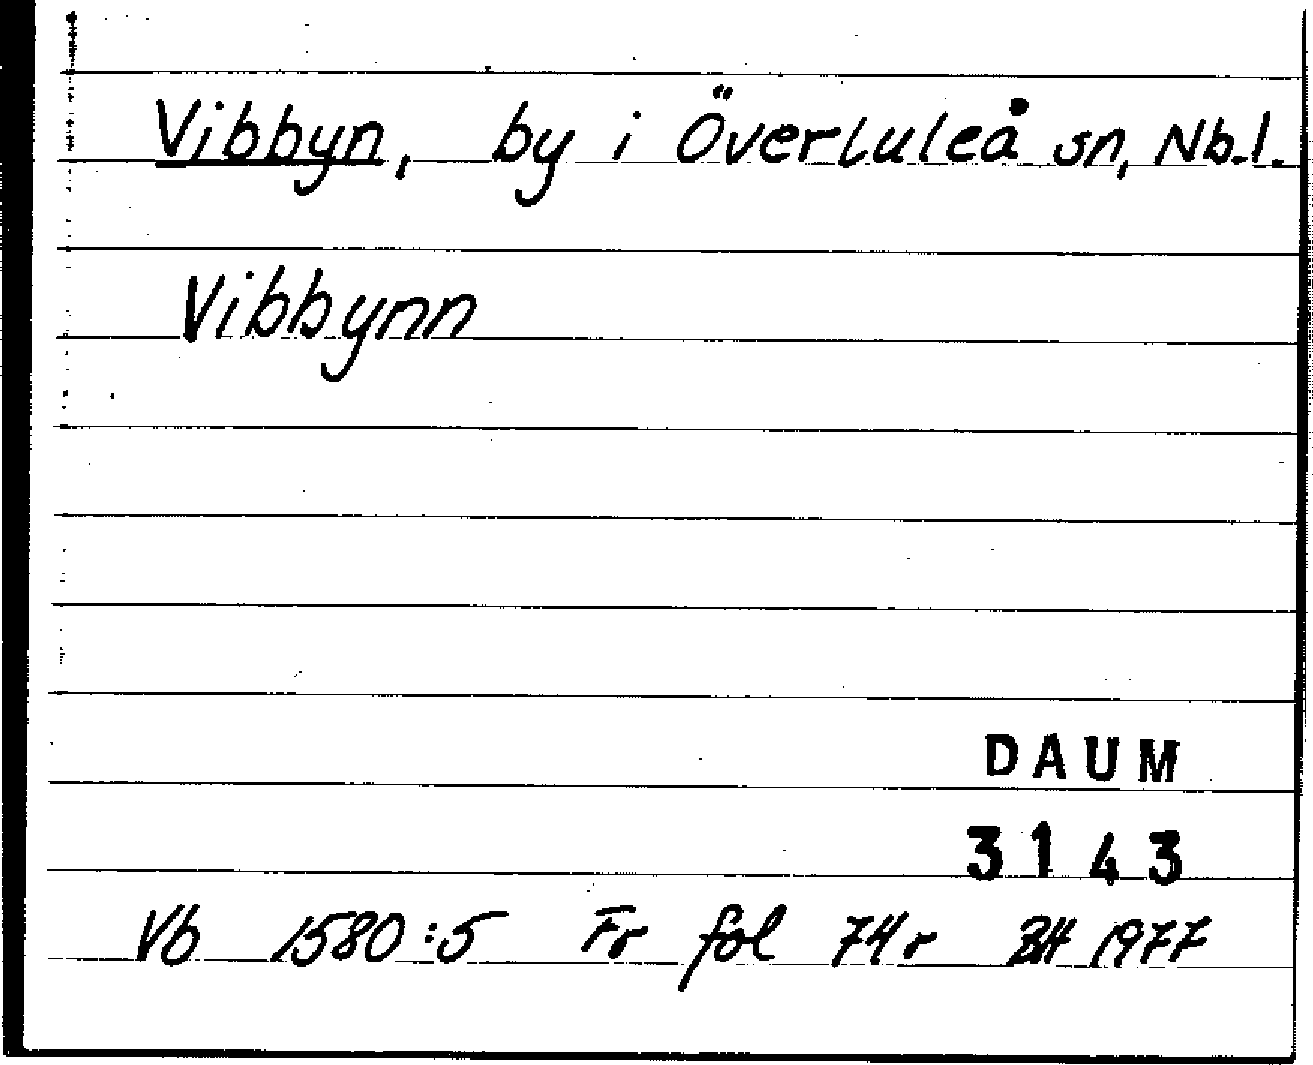 Vibbyn, by i Överluleå sn, Nb.l.
Vibbynn
DAUM
3143
Vb 1580:5 Fr fol 74r BH 1977